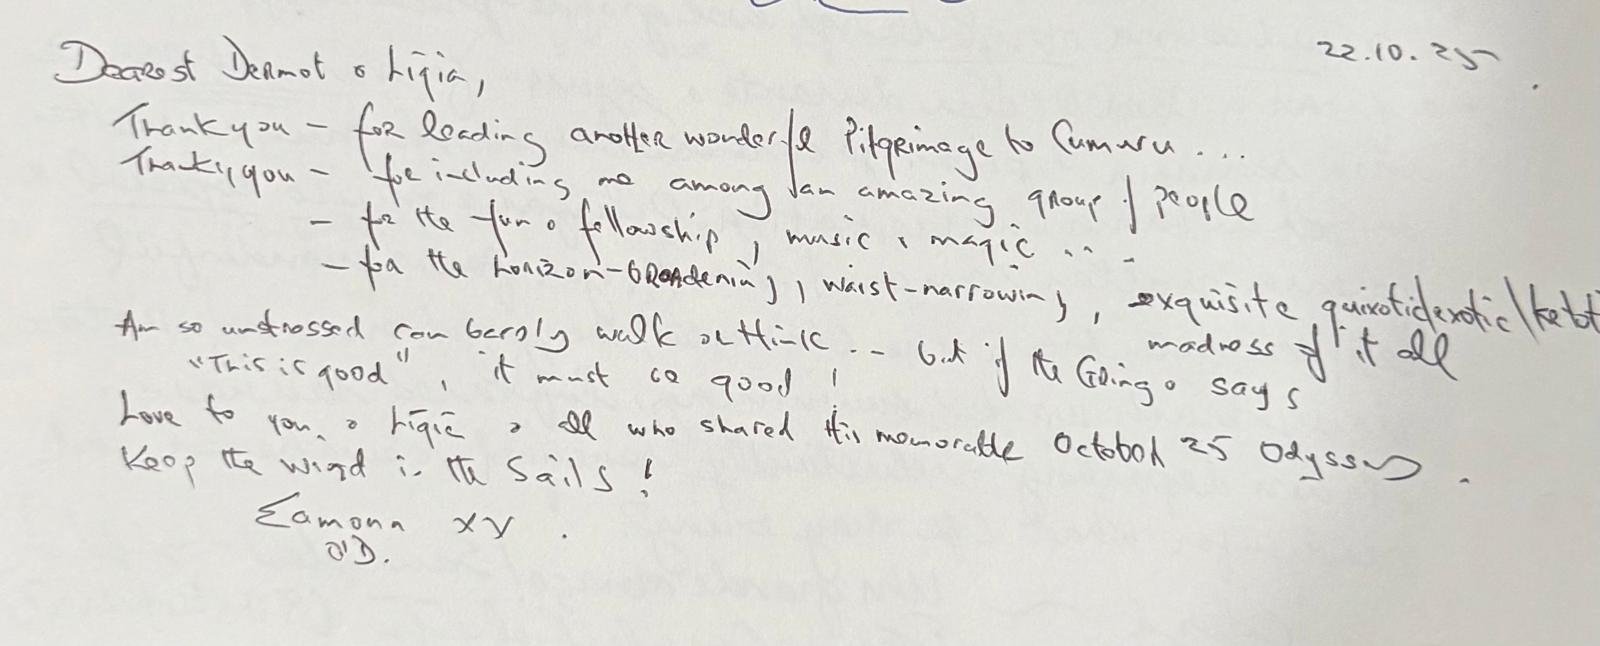 22.10.25
Dearest Dermot & Ligia,
Thank you – for leading another wonderful Pilgrimage to Cumuru ...
Thank you – for including me among an amazing group of people
– for the fun & fellowship, music & magic ...
– for the horizon-broadening, waist-narrowing, exquisite quixotic/exotic/
madness of it all
Am so unstressed can barely walk or think .. but if the Gringo says
"This is good", it must be good!
Love to you, & Ligia & all who shared this memorable October 25 Odyssey.
Keep the wind in the Sails!
Eamonn xx.
O'D.